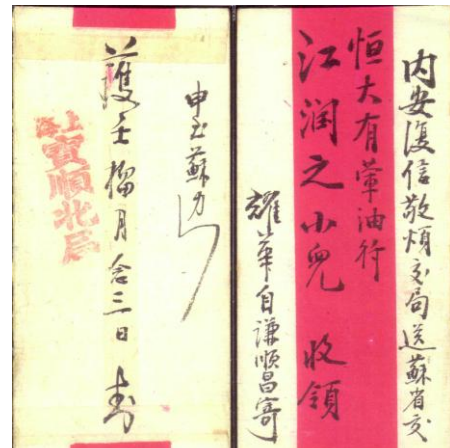 内安復信敬煩交局送蘇省交
恒大有葷油行
江润之小兒 收領
耀華自謙順昌寄
蘇力
護壬榴月念三日封
上海
寶順北局